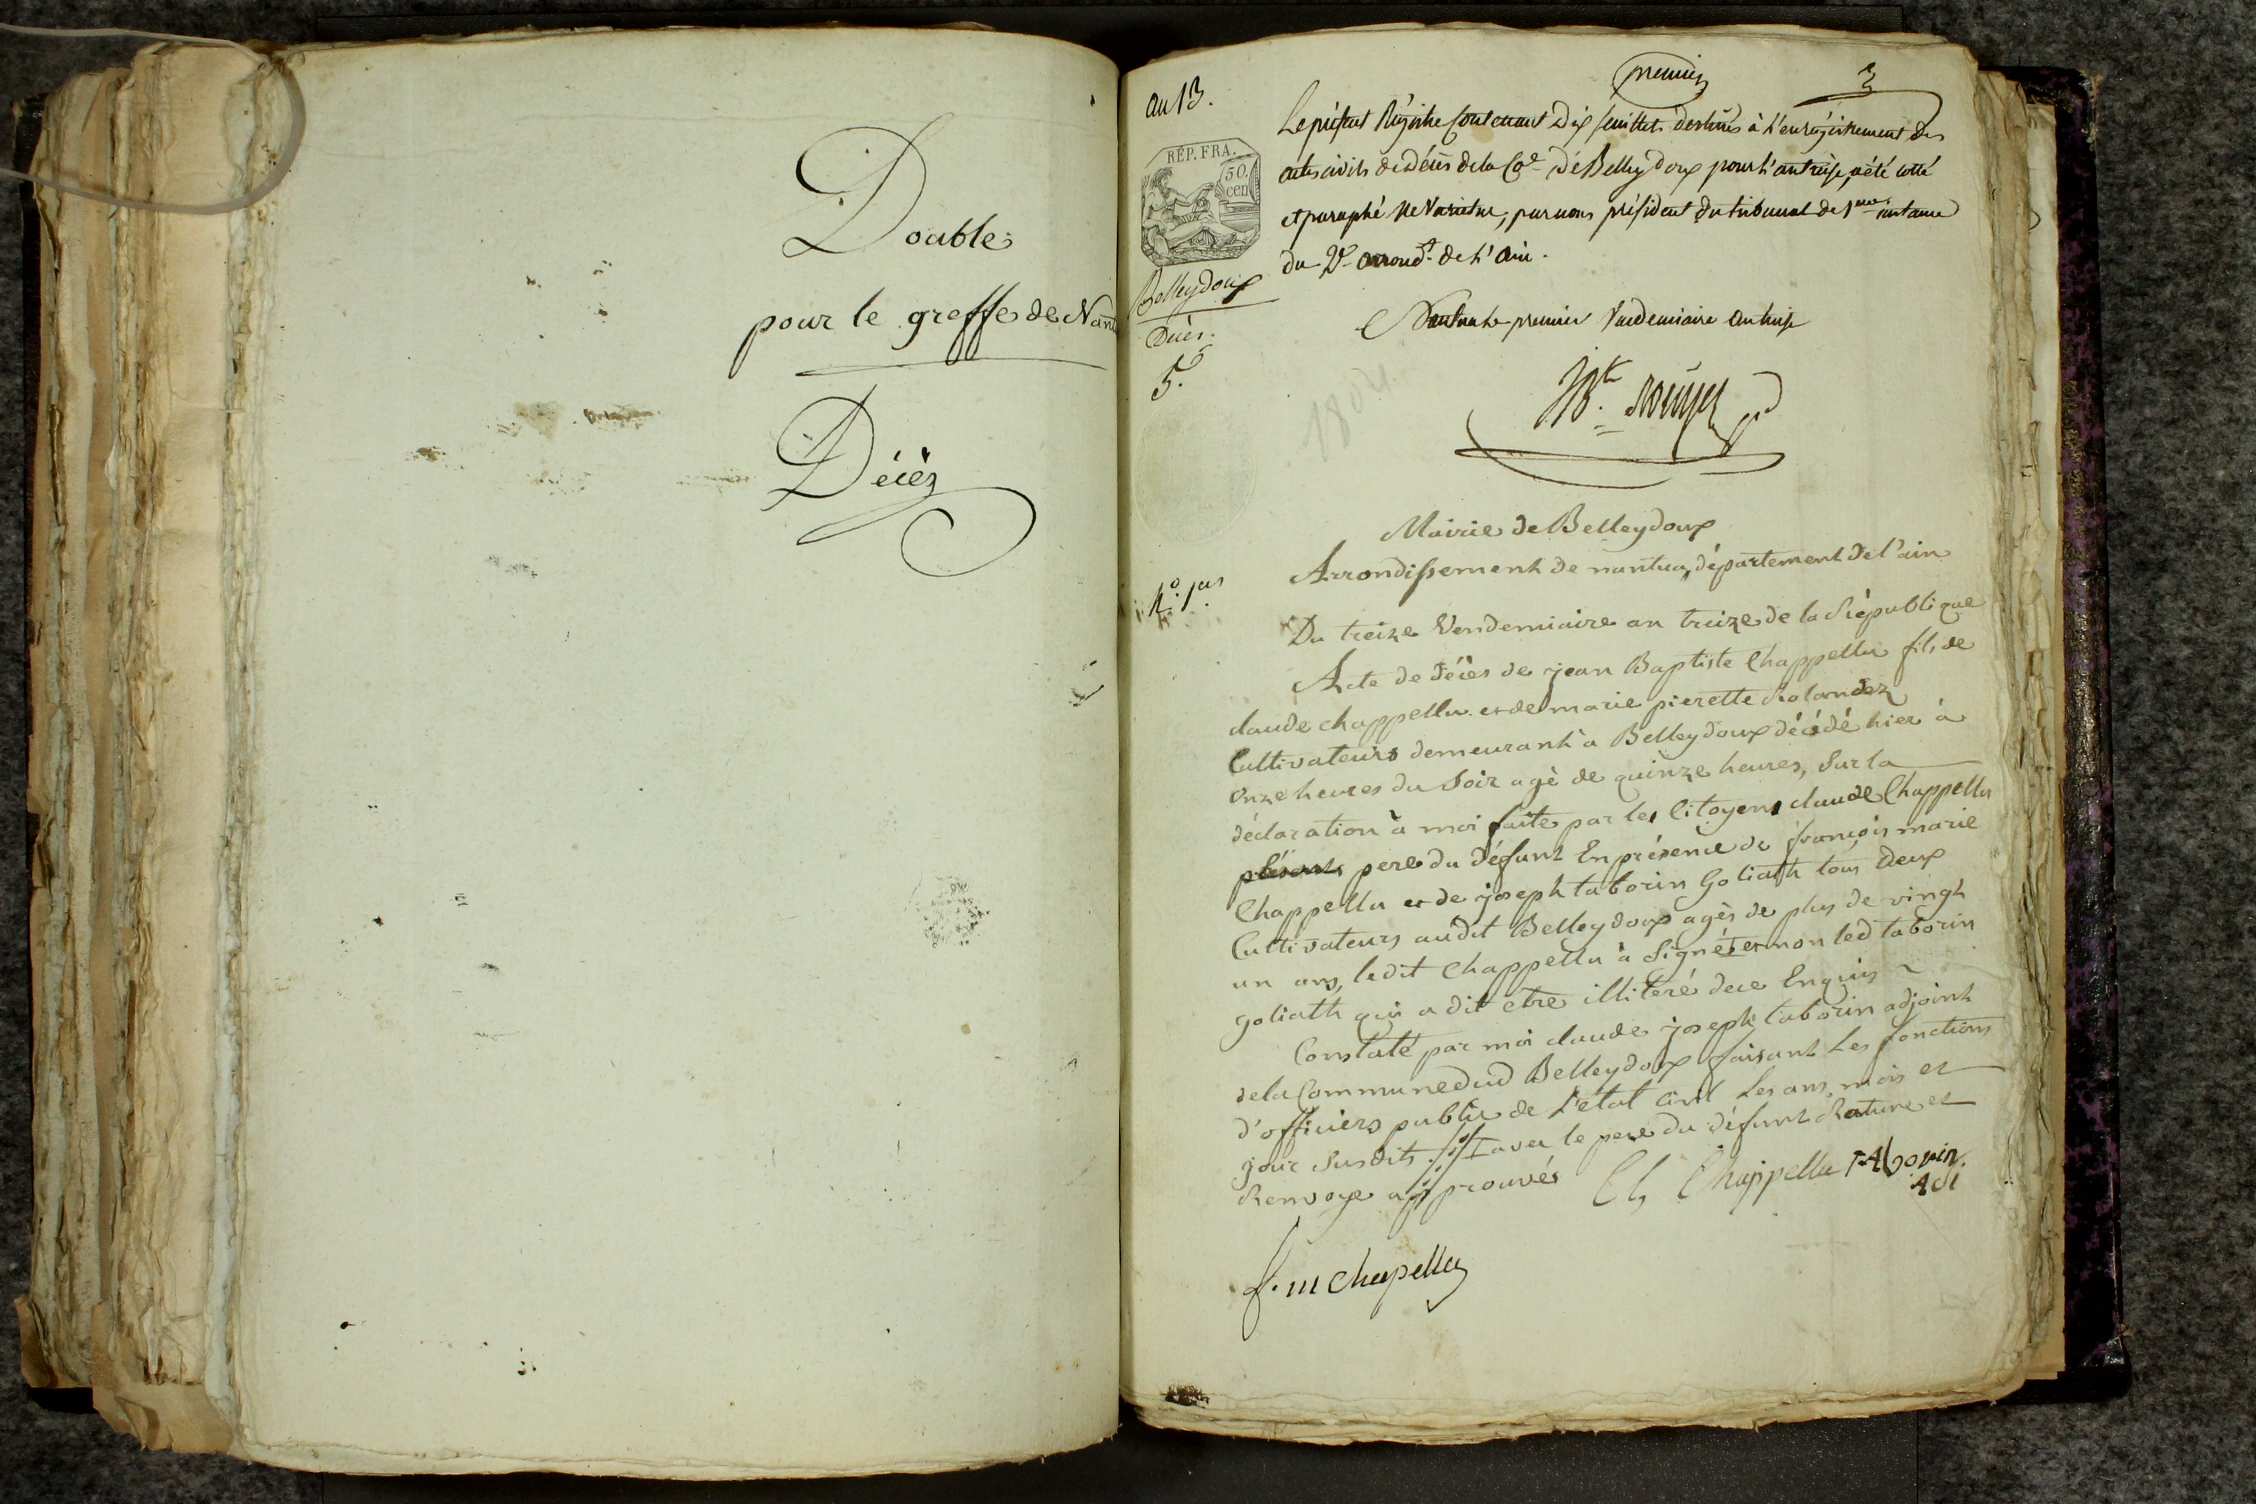 Double
pour le greffe de Nan
Décès
an 13.
premier
REP. FRA.
50.
cen
Belleydoux
Décès.
5.
Le présent Régistre Contenant Dix feuillets destinés à l'enrégistrement des
actes civils de décès de la Cne de Belleydoux pour l'an treize, a été cotté
et paraphé ne Varietur, par nous président du tribunal de 1ere instance
du 2e arrondt de l'ain.
Nantua le premier Vendemiaire an treize
1804
Mairie de Belleydoux
Arrondissement de nantua, département de l'ain
Du treize Vendemiaire an treize de la République
Acte de décès de jean Baptiste Chappellu fils de
claude chappellu et de marie pierette Rolandez
Cultivateurs demeurant à Belleydoux décédé hier à
onze heures du Soir agé de quinze heures, Sur la
déclaration à moi faite par les Citoyens claude Chappellu
pere du défunt En présence de françois marie
Chappellu et de joseph taborin Goliath tous deux
Cultivateurs audit Belleydoux agés de plus de vingt
un ans, ledit Chappellu à Signé et non led taborin
goliath qui a dit etre illiteré de ce Enquis
Constaté par moi claude joseph taborin adjoint
de la Commune dud Belleydoux faisant Les fonctions
d'officiers public de L'etat Civil Les ans, mois et
jour Susdits. avec le pere du défunt Rature et
Renvoye approuvés Ch Chappellu TAborin
Adt
f. m Chapellu